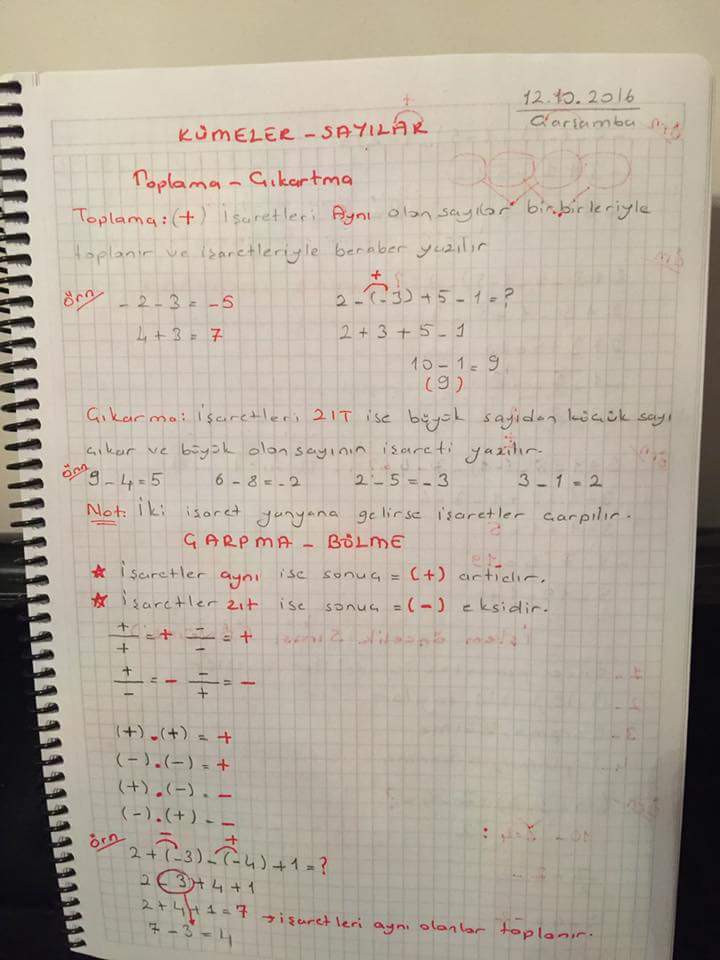 12.10.2016
Çarşamba
KÜMELER - SAYILAR
Toplama - Çıkartma
Toplama: (+) İşaretleri Aynı olan sayılar birbirleriyle
toplanır ve işaretleriyle beraber yazılır
Örn
- 2 - 3 = -5
4 + 3 = 7
+
2 - (-3) + 5 - 1 = ?
2 + 3 + 5 - 1
10 - 1 = 9
(9)
Çıkarma: İşaretleri ZIT ise büyük sayıdan küçük sayı
çıkar ve büyük olan sayının işareti yazılır.
Örn
9 - 4 = 5 6 - 8 = -2 2 - 5 = -3 3 - 1 = 2
Not: İki işaret yanyana gelirse işaretler çarpılır.
ÇARPMA - BÖLME
★ İşaretler aynı ise sonuç = (+) artıdır.
★ İşaretler zıt ise sonuç = (-) eksidir.
+/+ = + -/- = +
+/- = - -/+ = -
(+).(+) = +
(-).(-) = +
(+).(-) - -
(-).(+) - -
Örn
- +
2 + (-3) - (-4) + 1 = ?
2 - 3 + 4 + 1
2 + 4 + 1 = 7 → işaretleri aynı olanlar toplanır.
7 - 3 = 4